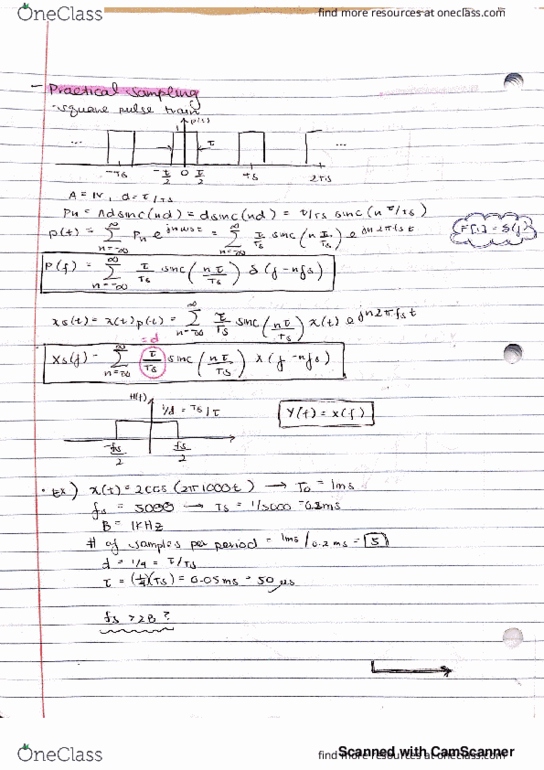 OneClass
find more resources at oneclass.com
- Practical Sampling
- square pulse train
p(t)
... τ ...
-Ts -τ/2 0 τ/2 Ts 2Ts
A = 1V, d = τ/Ts
Pn = Adsinc(nd) = dsinc(nd) = τ/Ts sinc(n τ/Ts)
p(t) = ∞Σn=-∞ Pn e^jnωst = ∞Σn=-∞ τ/Ts sinc(n τ/Ts) e^jn2πfst
F[1] = δ(f)
P(f) = ∞Σn=-∞ τ/Ts sinc(nτ/Ts) δ(f-nfs)
xs(t) = x(t)p(t) = ∞Σn=-∞ τ/Ts sinc(nτ/Ts) x(t) e^jn2πfst
= d
Xs(f) = ∞Σn=-∞ τ/Ts sinc(nτ/Ts) X(f-nfs)
H(f)
1/d = Ts/τ
Y(f) = X(f)
-fs/2 fs/2
• Ex) x(t) = 2cos(2π1000t) → To = 1ms
fs = 5000 → Ts = 1/5000 = 0.2ms
B = 1KHz
# of samples per period = 1ms/0.2ms = 5
d = 1/4 = τ/Ts
τ = (1/4)(Ts) = 0.05ms = 50μs
fs > 2B ?
OneClass
find more resources at oneclass.com
Scanned with CamScanner